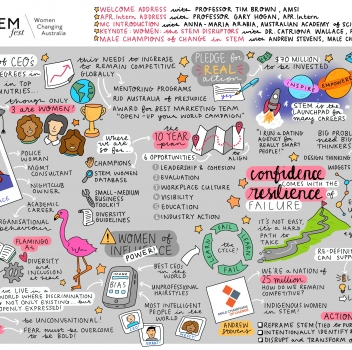 EM
fest
Women
Changing
Australia
WELCOME ADDRESS with PROFESSOR TIM BROWN, AMSI
APR.Intern ADDRESS with PROFESSOR GARY HOGAN, APR.Intern
MC INTRODUCTION with ANNA-MARIA ARABIA, AUSTRALIAN ACADEMY OF SC
KEYNOTE: WOMEN: THE STEM DISRUPTORS with DR. CATRIONA WALLACE, F
MALE CHAMPIONS OF CHANGE IN STEM with ANDREW STEVENS, MALE CH
OF CEO'S
DEGREES in
in TOP
COUNTRIES...
though only
3 are WOMEN!
this NEED to INCREASE
to REMAIN COMPETITIVE
GLOBALLY
MENTORING PROGRAMS
RID AUSTRALIA OF PREJUDICE
AWARD for BEST MARKETING TEAM
"OPEN-UP your WORLD CAMPAIGN"
PLEDGE for
REAL
action
$70 MILLION
to BE INVESTED
INSPIRE
EMPOWER
STEM is the
LAUNCHPAD for
MANY CAREERS
"I RUN a DATING
AGENCY for
REALLY SMART
PEOPLE!"
BIG PRO
NEED BIG
THINKERS
DESIGN THINKING
WIDGETS
POLICE
WOMAN
MGMT
CONSULTANT
NIGHTCLUB
OWNER
ACADEMIC
CAREER
ORGANISATIONAL
BEHAVIOUR
Where
we are
so far
CHAMPIONS
STEM WOMEN
DATABASE
SMALL-MEDIUM
BUSINESS
TOOLKIT
DIVERSITY
GUIDELINES
the
10 YEAR
plan
6 OPPORTUNITIES
to
ALIGN
LEADERSHIP & COHESION
EVALUATION
WORKPLACE CULTURE
VISIBILITY
EDUCATION
INDUSTRY ACTION
confidence
COMES with the
resilience of
FAILURE
IT'S NOT EASY,
IT'S a HARD
PATH to
TAKE
RE-DEFINI
CAN SUPPO
FLAMINGO
AS
DIVERSITY
and
INCLUSION
at scale
WE LIVE in a
WORLD WHERE DISCRIMINATION
is NOT EXISTING... but
OPENLY EXPRESSED!
BE UNCONVENTIONAL!
FEAR must be OVERCOME
to be BOLD!
WOMEN of
INFLUENCE
POWER
BIAS
BEST CEO'S
in the
WORLD
UNPROFESSIONAL
HAIRSTYLES
MOST INTELLIGENT
PEOPLE in the
WORLD
TRAIL
FAIL
the
CYCLE!
ANDREW
Stevens
WE'RE a NATION of
25 million
HOW DO WE REMAIN
COMPETITIVE?
INDIGENOUS WOMEN
in STEM!
ACTION
REFRAME STEM
INTENTIONALLY IDENTIFY
DISRUPT and TRANSFORM